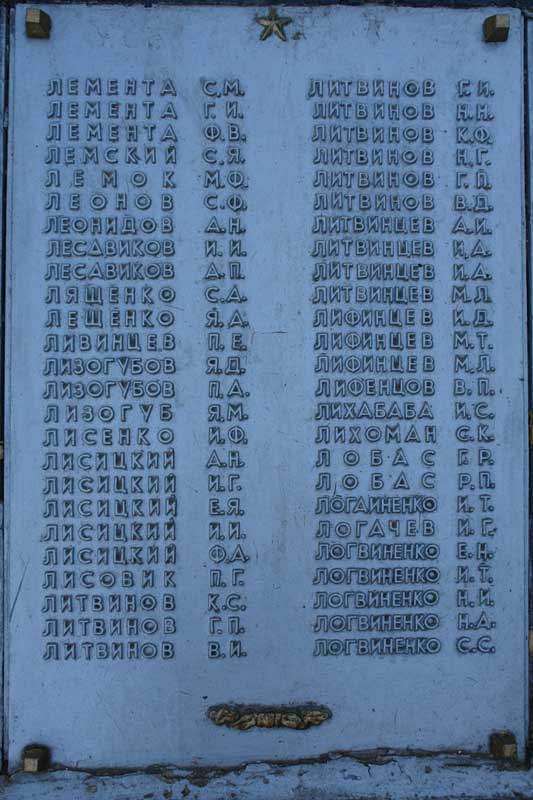 ЛЕМЕНТА С.М.
ЛЕМЕНТА Г.И.
ЛЕМЕНТА Ф.В.
ЛЕМСКИЙ С.Я.
ЛЕМОК М.Ф.
ЛЕОНОВ С.Ф.
ЛЕОНИДОВ А.Н.
ЛЕСАВИКОВ И.И.
ЛЕСАВИКОВ А.П.
ЛЯЩЕНКО С.А.
ЛЕЩЕНКО Я.А.
ЛИВИНЦЕВ П.Е.
ЛИЗОГУБОВ Я.Д.
ЛИЗОГУБОВ П.А.
ЛИЗОГУБ Я.М.
ЛИСЕНКО И.Ф.
ЛИСИЦКИЙ А.Н.
ЛИСИЦКИЙ И.Г.
ЛИСИЦКИЙ Е.Я.
ЛИСИЦКИЙ И.И.
ЛИСИЦКИЙ Ф.А.
ЛИСОВИК П.Г.
ЛИТВИНОВ К.С.
ЛИТВИНОВ Г.П.
ЛИТВИНОВ В.И.
ЛИТВИНОВ Г.И.
ЛИТВИНОВ Н.Н.
ЛИТВИНОВ К.Ф.
ЛИТВИНОВ Н.Г.
ЛИТВИНОВ Г.П.
ЛИТВИНОВ В.Д.
ЛИТВИНЦЕВ А.И.
ЛИТВИНЦЕВ И.А.
ЛИТВИНЦЕВ И.А.
ЛИТВИНЦЕВ М.Л.
ЛИФИНЦЕВ И.Д.
ЛИФИНЦЕВ М.Т.
ЛИФИНЦЕВ М.Л.
ЛИФЕНЦОВ В.П.
ЛИХАБАБА И.С.
ЛИХОМАН С.К.
ЛОБАС Г.Р.
ЛОБАС Р.П.
ЛОГАИНЕНКО И.Т.
ЛОГАЧЕВ И.Г.
ЛОГВИНЕНКО Е.Н.
ЛОГВИНЕНКО И.Т.
ЛОГВИНЕНКО Н.И.
ЛОГВИНЕНКО Н.А.
ЛОГВИНЕНКО С.С.